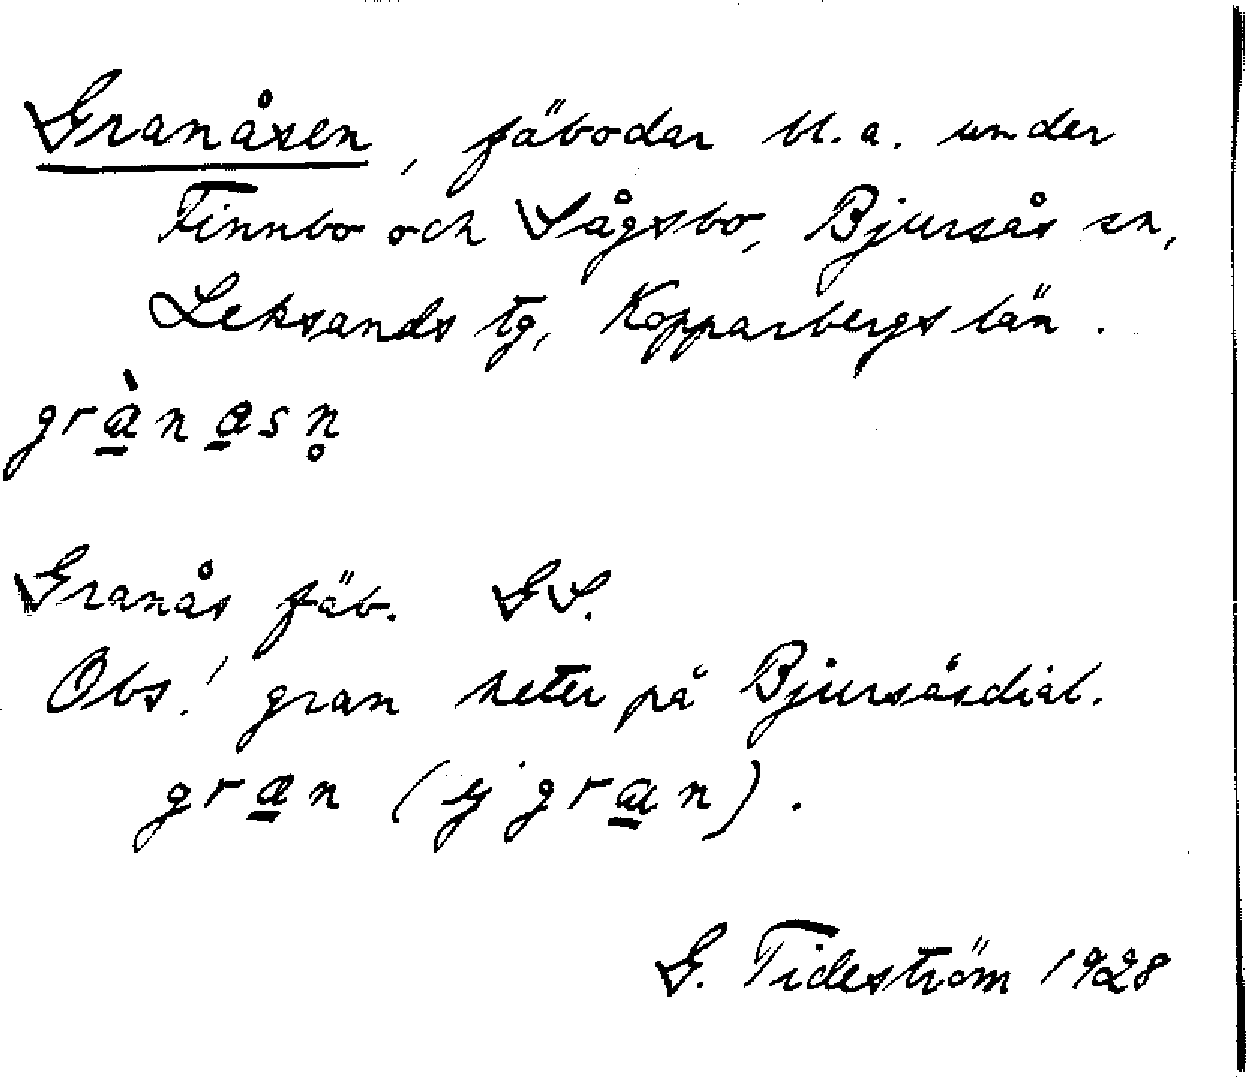 Granåsen, fäbodar bl.a. under
Finnbo och Sågsbo, Bjursås sn,
Leksands tg, Kopparbergs län.
grà̱na̱sn̥
Granås fäb. GS.
Obs! gran heter på Bjursåsdial.
græ̱n (ej gra̱n).
G. Tideström 1928